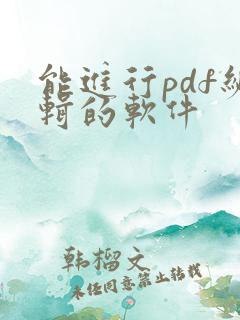 能進行pdf編
輯的軟件
韩榴文
未经同意禁止转载